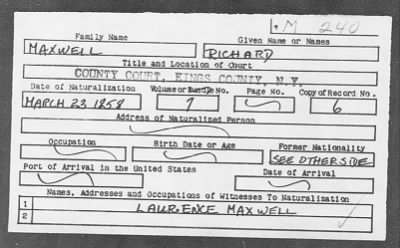 M 240
Family Name Given Name or Names
MAXWELL RICHARD
Title and Location of Court
COUNTY COURT, KINGS COUNTY, N.Y.
Date of Naturalization Volume or Bundle No. Page No. Copy of Record No.
MARCH 23 1858 7 6
Address of Naturalized Person
Occupation Birth Date or Age Former Nationality
SEE OTHERSIDE
Port of Arrival in the United States Date of Arrival
Names, Addresses and Occupations of Witnesses To Naturalization
1 LAURENCE MAXWELL
2